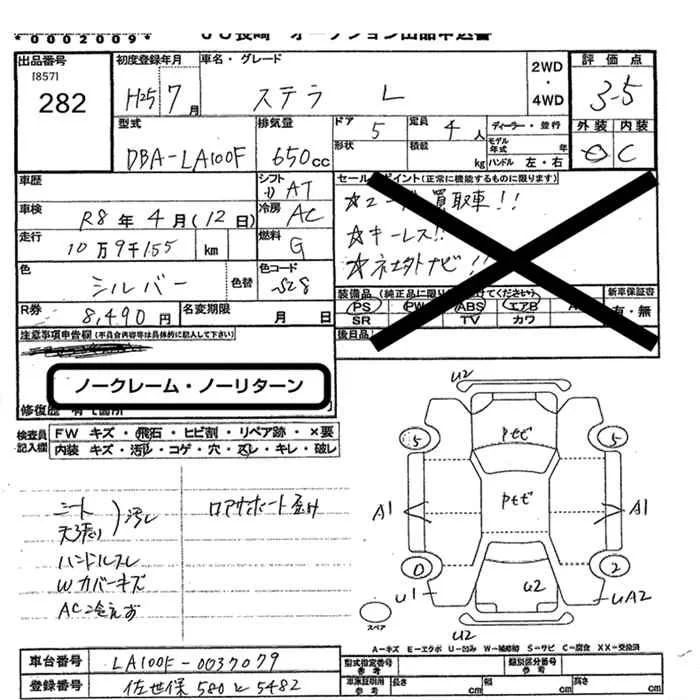 *0002009*
JU長崎 オークション出品申込書
出品番号
[857]
282
初度登録年月
H25 7 月
車名・グレード
ステラ L
2WD
・
4WD
評価点
3-5
外装 内装
C
型式
DBA-LA100F
排気量
650cc
ドア 5
形状
定員 4 人
積載 kg
ディーラー・並行
モデル年式 年
ハンドル 左・右
車歴
シフト AT
車検 R8年4月(12日)
冷房 AC
走行 10万9千155 km
燃料 G
色 シルバー 色替
色コード S28
R券 8,490 円
名変期限 月 日
セールスポイント(正常に機能するものに限ります)
買取車!!
☆キーレス!!
☆社外ナビ!!
装備品(純正品に限り○を付けてください)
新車保証書
PS PW ABS エアB
SR TV カワ
有・無
後日品
注意事項申告欄(不具合内容等は具体的に記入して下さい)
ノークレーム・ノーリターン
修復歴 有( 箇所 )
検査員記入欄
FW キズ・飛石・ヒビ割・リペア跡・×要
内装 キズ・汚れ・コゲ・穴・スレ・キレ・破レ
ニート
天張り )汚レ
ハンドルスレ
Wカバーキズ
AC冷えず
ロアサポート歪み
U2
5
Pセビ
5
A1
Pセビ
A1
0
2
U1
U2
UA2
U2
スペア
A-キズ E-エクボ U-凹み W-補修跡 S-サビ C-腐食 XX-交換済
車台番号 LA100F-0037079
登録番号 佐世保 580 と 5482
型式指定番号 参考
類別区分番号 参考
車庫証明用 参考 長さ cm 幅 cm 高さ cm